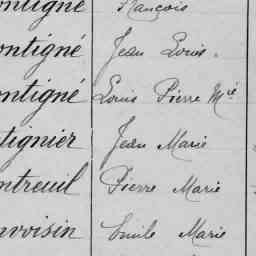 ontigné François
ontigné Jean Louis.
ontigné Louis Pierre Mie
tignier Jean Marie
ntreuil Pierre Marie
nvoisin Emile Marie